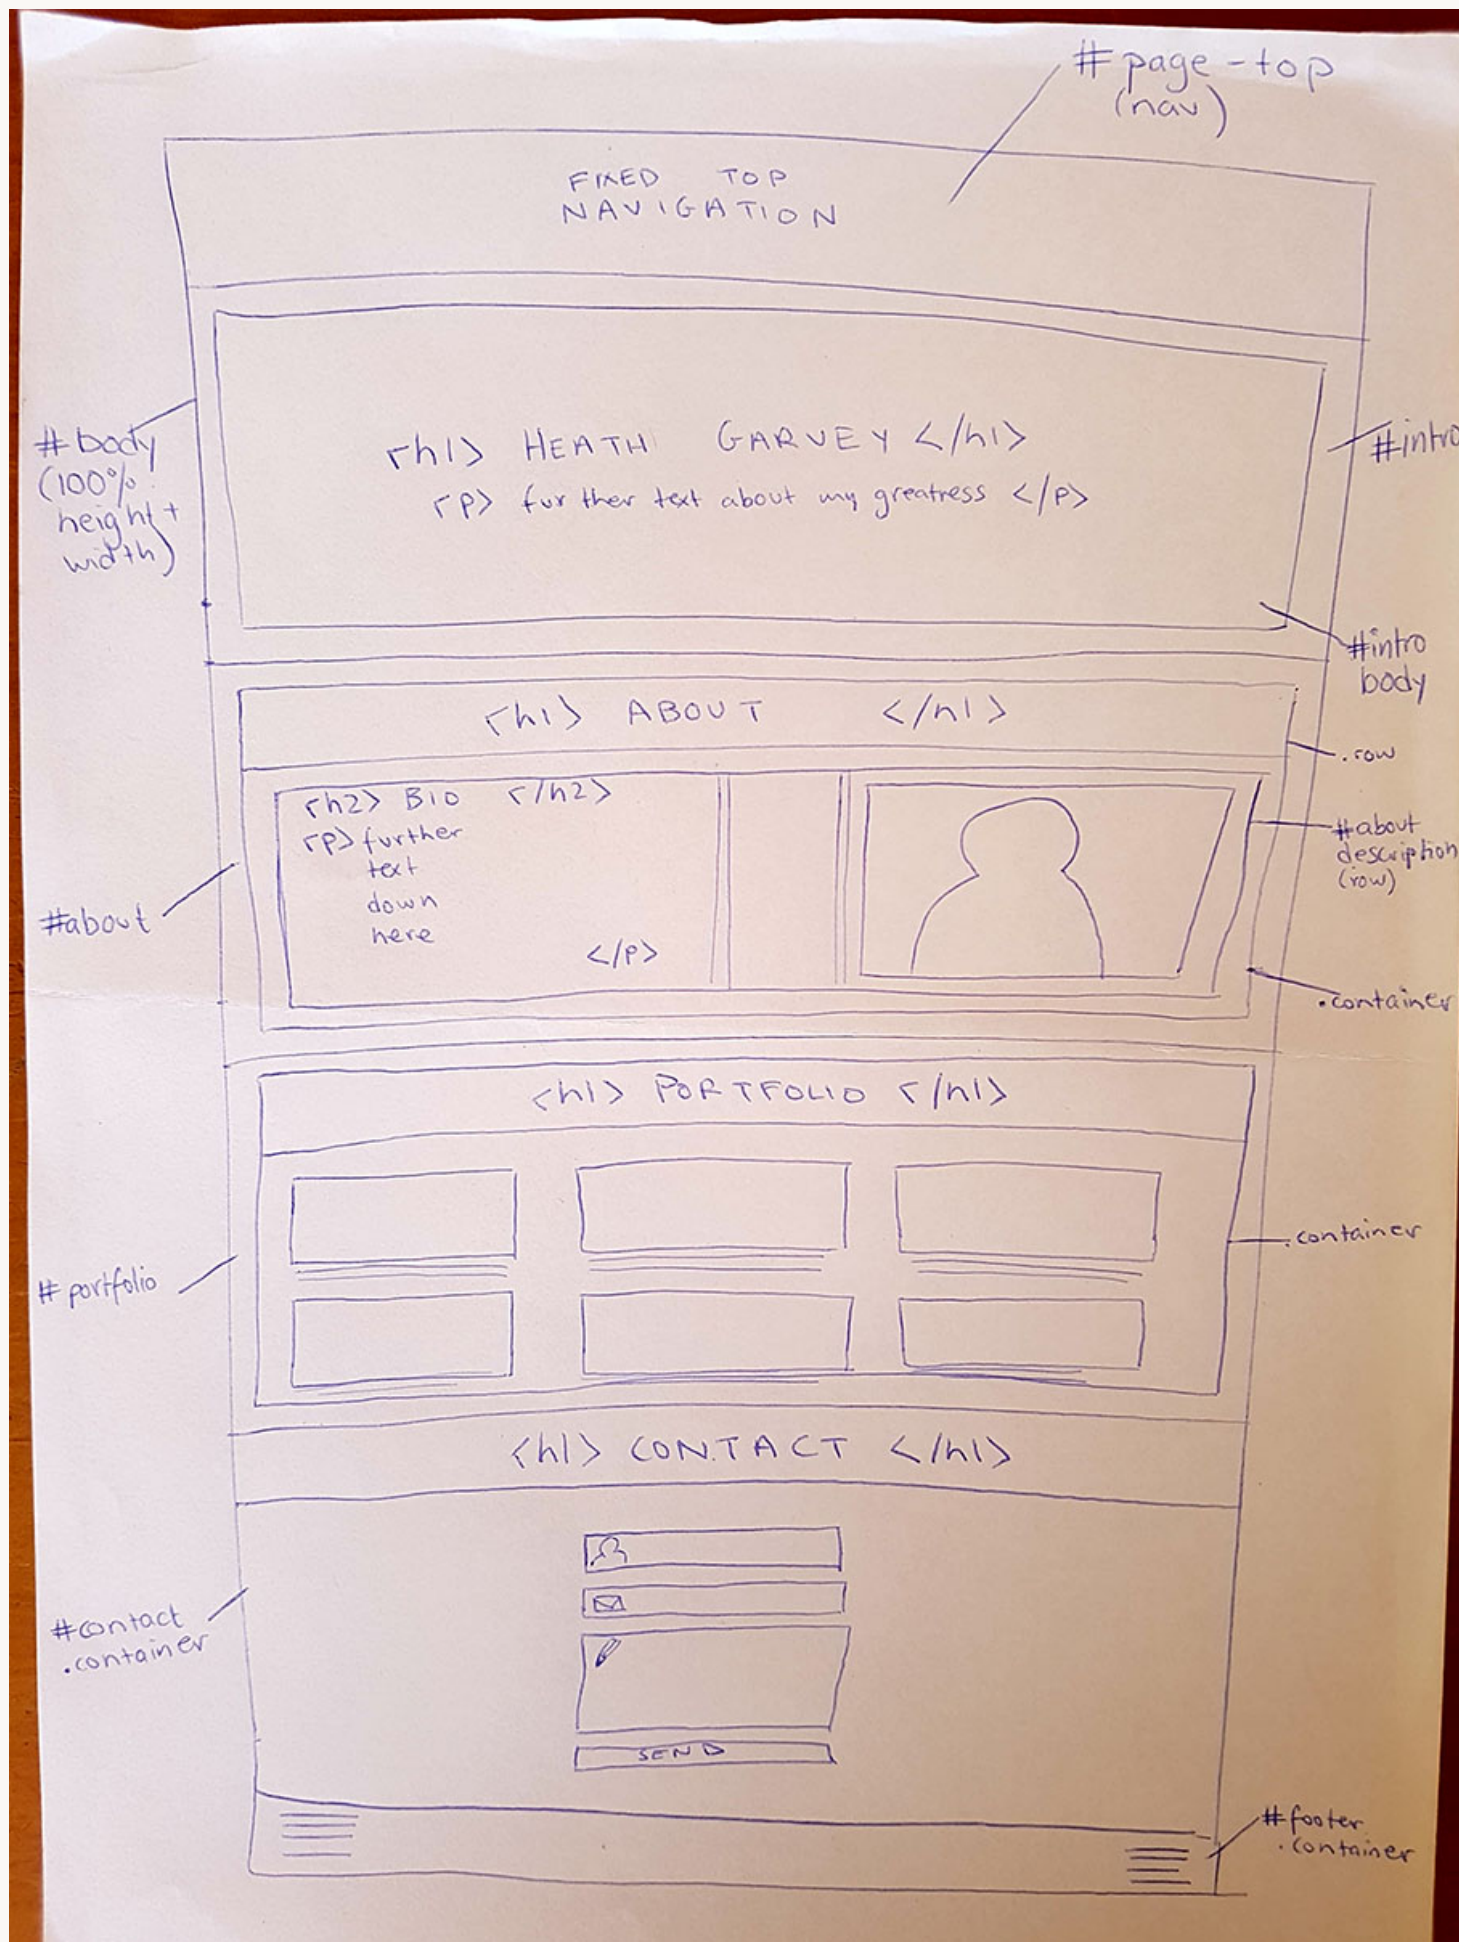 #page-top
(nav)
FIXED TOP
NAVIGATION
#body
(100%
height +
width)
<h1> HEATH GARVEY </h1>
<p> further text about my greatness </p>
#intro
#intro
body
<h1> ABOUT </h1>
.row
<h2> BIO </h2>
<p> further
text
down
here
</p>
#about
description
(row)
#about
.container
<h1> PORTFOLIO </h1>
# portfolio
.container
<h1> CONTACT </h1>
#contact
.container
SEND
#footer
.container